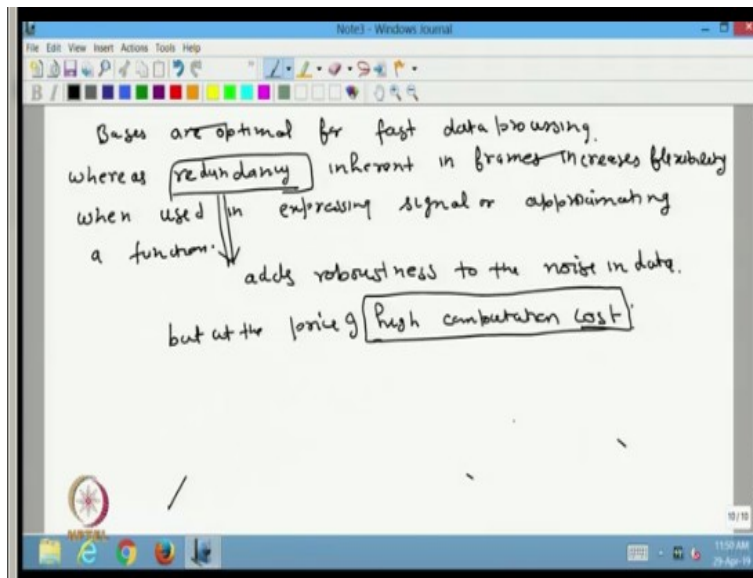 Note3 - Windows Journal
File Edit View Insert Actions Tools Help
Bases are optimal for fast data processing.
whereas redundancy inherent in frames increases flexibility
when used in expressing signal or approximating
a function.
adds roboustness to the noise in data.
but at the price of high computation cost.
10/10
NPTEL
11:50 AM
29-Apr-19